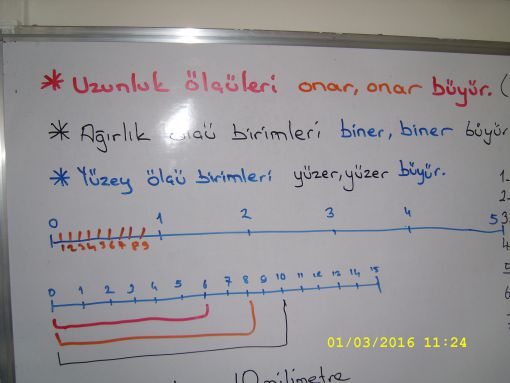 * Uzunluk ölçüleri onar, onar büyür. (
* Ağırlık ölçü birimleri biner, biner büyür
* Yüzey ölçü birimleri yüzer, yüzer büyür.
0 1 2 3 4 5
1 2 3 4 5 6 7 8 9
0 1 2 3 4 5 6 7 8 9 10 11 12 13 14 15
1-
2-
3
4
6
01/03/2016 11:24
10 milimetre